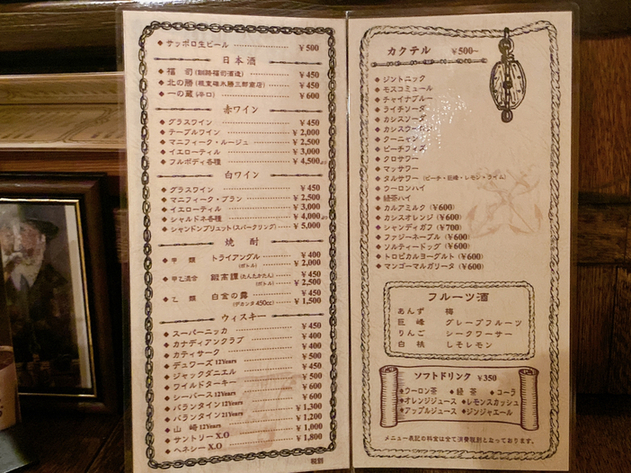 サッポロ生ビール ¥500
日本酒
福司(釧路福司酒造) ¥450
北の勝(根室碓氷勝三郎商店) ¥450
一の蔵(辛口) ¥600
赤ワイン
グラスワイン ¥450
テーブルワイン ¥2,000
マニフィーク・ルージュ ¥2,500
イエローテイル ¥3,000
フルボディ各種 ¥4,500より
白ワイン
グラスワイン ¥450
マニフィーク・ブラン ¥2,500
イエローテイル ¥3,000
シャルドネ各種 ¥4,000より
シャンドンブリュット(スパークリング) ¥5,000
焼酎
甲類 トライアングル ¥400
(ボトル) ¥2,000
甲乙混合 鍛高譚(たんたかたん) ¥450
(ボトル) ¥2,500
乙類 白玄の露 ¥450
(デカンタ 450cc) ¥1,500
ウィスキー
スーパーニッカ ¥450
カナディアンクラブ ¥400
カティサーク ¥400
デュワーズ 12Years ¥500
ジャックダニエル ¥450
ワイルドターキー ¥500
シーバース 12Years ¥600
バランタイン 12Years ¥600
バランタイン 21Years ¥1,300
山崎 12Years ¥1,200
サントリー X.O ¥1,000
ヘネシー X.O ¥1,800
税別
カクテル ¥500~
ジントニック
モスコミュール
チャイナブルー
ライチソーダ
カシスソーダ
カシスウーロン
クーニャン
ピーチフィズ
クロサワー
マッサワー
タルサワー(ピーチ・巨峰・レモン・ライム)
ウーロンハイ
緑茶ハイ
カルアミルク(¥600)
カシスオレンジ(¥600)
シャンディガフ(¥700)
ファジーネーブル(¥600)
ソルティードッグ(¥600)
トロピカルヨーグルト(¥600)
マンゴーマルガリータ(¥600)
フルーツ酒
あんず 梅
巨峰 グレープフルーツ
りんご シークワーサー
白桃 しそレモン
ソフトドリンク ¥350
ウーロン茶 緑茶 コーラ
オレンジジュース レモンスカッシュ
アップルジュース ジンジャエール
メニュー表記の料金は全て消費税別となっております。